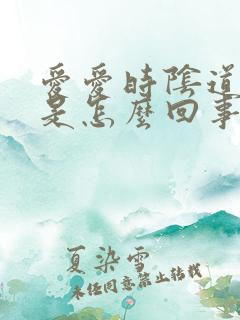 愛愛時陰道
是怎麼回事
夏染雪
未經同意禁止轉載